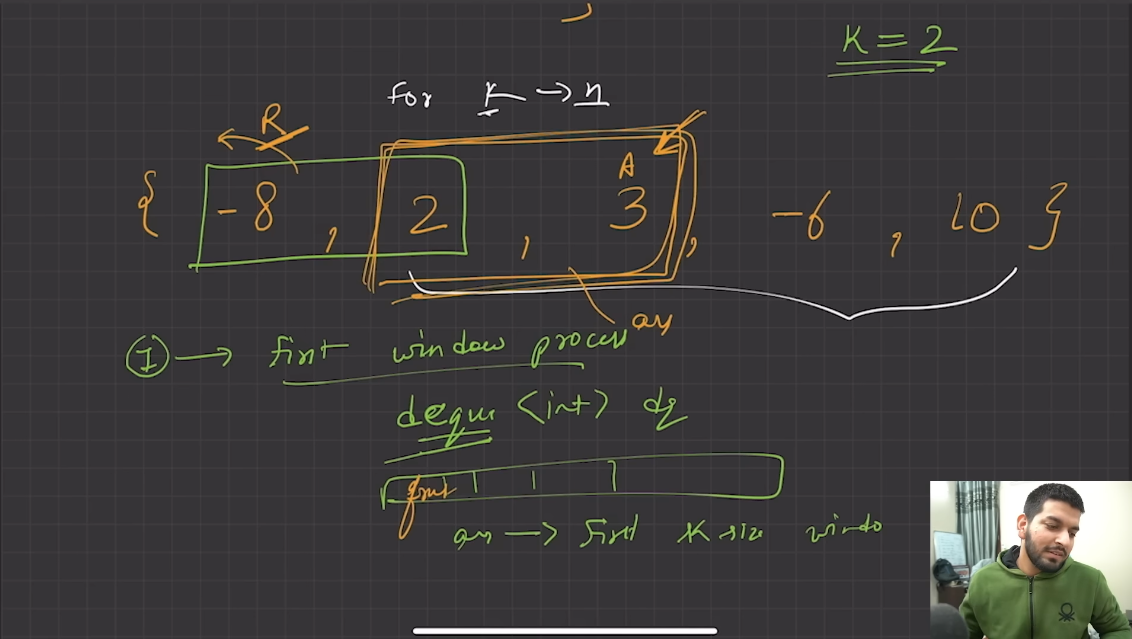 K = 2
for K → n
R
A
{ -8 , 2 , 3 , -6 , 10 }
ans
I → first window process
deque <int> dq
front
ans → first K size windo